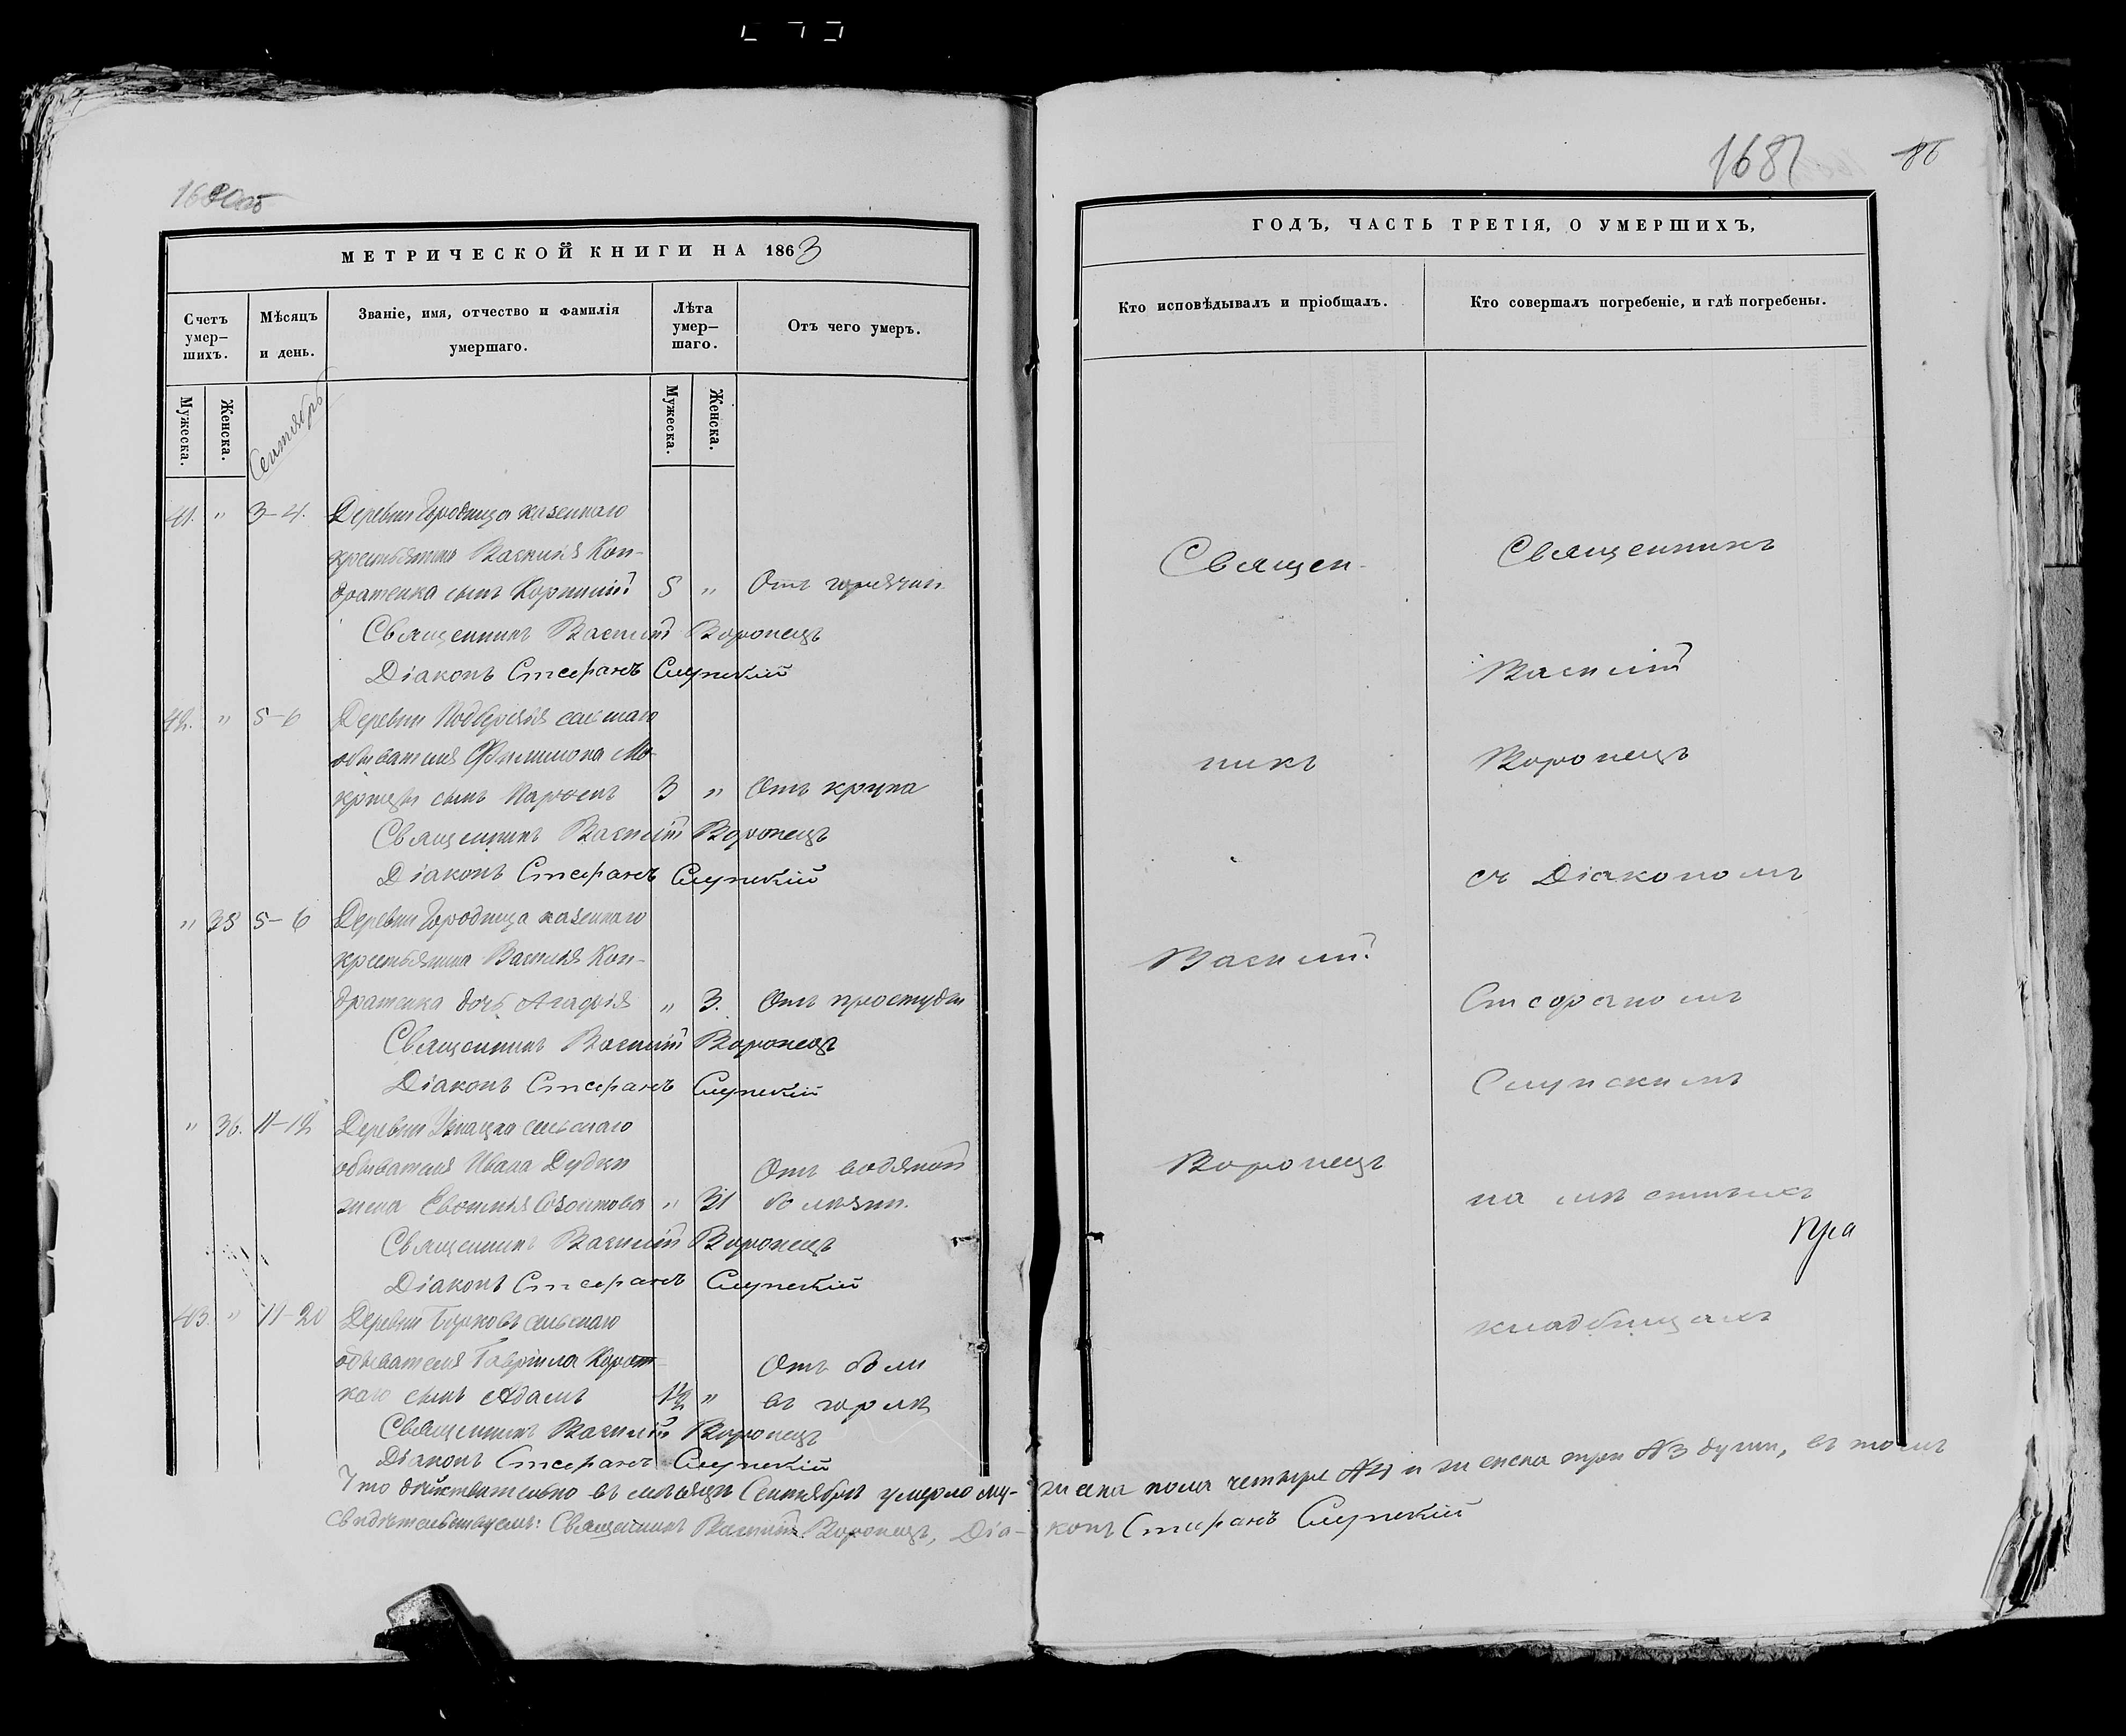 1681
86
МЕТРИЧЕСКОЙ КНИГИ НА 1863
Счетъ умер–шихъ.
Мѣсяцъ и день.
Званіе, имя, отчество и фамилія умершаго.
Лѣта умер–шаго.
Отъ чего умеръ.
Мужеска.
Женска.
Сентябрь
Мужеска.
Женска.
41. " 3–4. Деревни Городница казеннаго
крестьянина Василія Кон-
дратенка сынъ Корнилій 5 " Отъ горячки
Священникъ Василій Воронецъ
Діаконъ Стефанъ Слупскій
42. " 5–6 Деревни сельскаго
обывателя Филимона Мо-
сынъ 3 " Отъ крупа
Священникъ Василій Воронецъ
Діаконъ Стефанъ Слупскій
" 35 5–6 Деревни Городница казеннаго
крестьянина Василія Кон-
дратенка дочь Агафія " 3. Отъ простуды
Священникъ Василій Воронецъ
Діаконъ Стефанъ Слупскій
" 36. 11–12 Деревни сельскаго
обывателя Ивана Дудки Отъ водяной
жена " 31 болѣзни.
Священникъ Василій Воронецъ
Діаконъ Стефанъ Слупскій
43. " 19–20 Деревни сельскаго
обывателя Гавріила Корот-
каго сынъ Адамъ 1½ " Отъ боли
въ горлѣ
Священникъ Василій Воронецъ
Діаконъ Стефанъ Слупскій
ГОДЪ, ЧАСТЬ ТРЕТІЯ, О УМЕРШИХЪ,
Кто исповѣдывалъ и пріобщалъ.
Кто совершалъ погребеніе, и гдѣ погребены.
Священ-
никъ
Василій
Воронецъ
Священникъ
Василій
Воронецъ
съ Діакономъ
Стефаномъ
Слупскимъ
на мѣстныхъ
кладбищахъ
Что дѣйствительно въ мѣсяцѣ Сентябрѣ умерло му-жеска пола четыре №4 и женска три №3 души, въ томъ
свидѣтельствуемъ: Священникъ Василій Воронецъ, Діа-конъ Стефанъ Слупскій